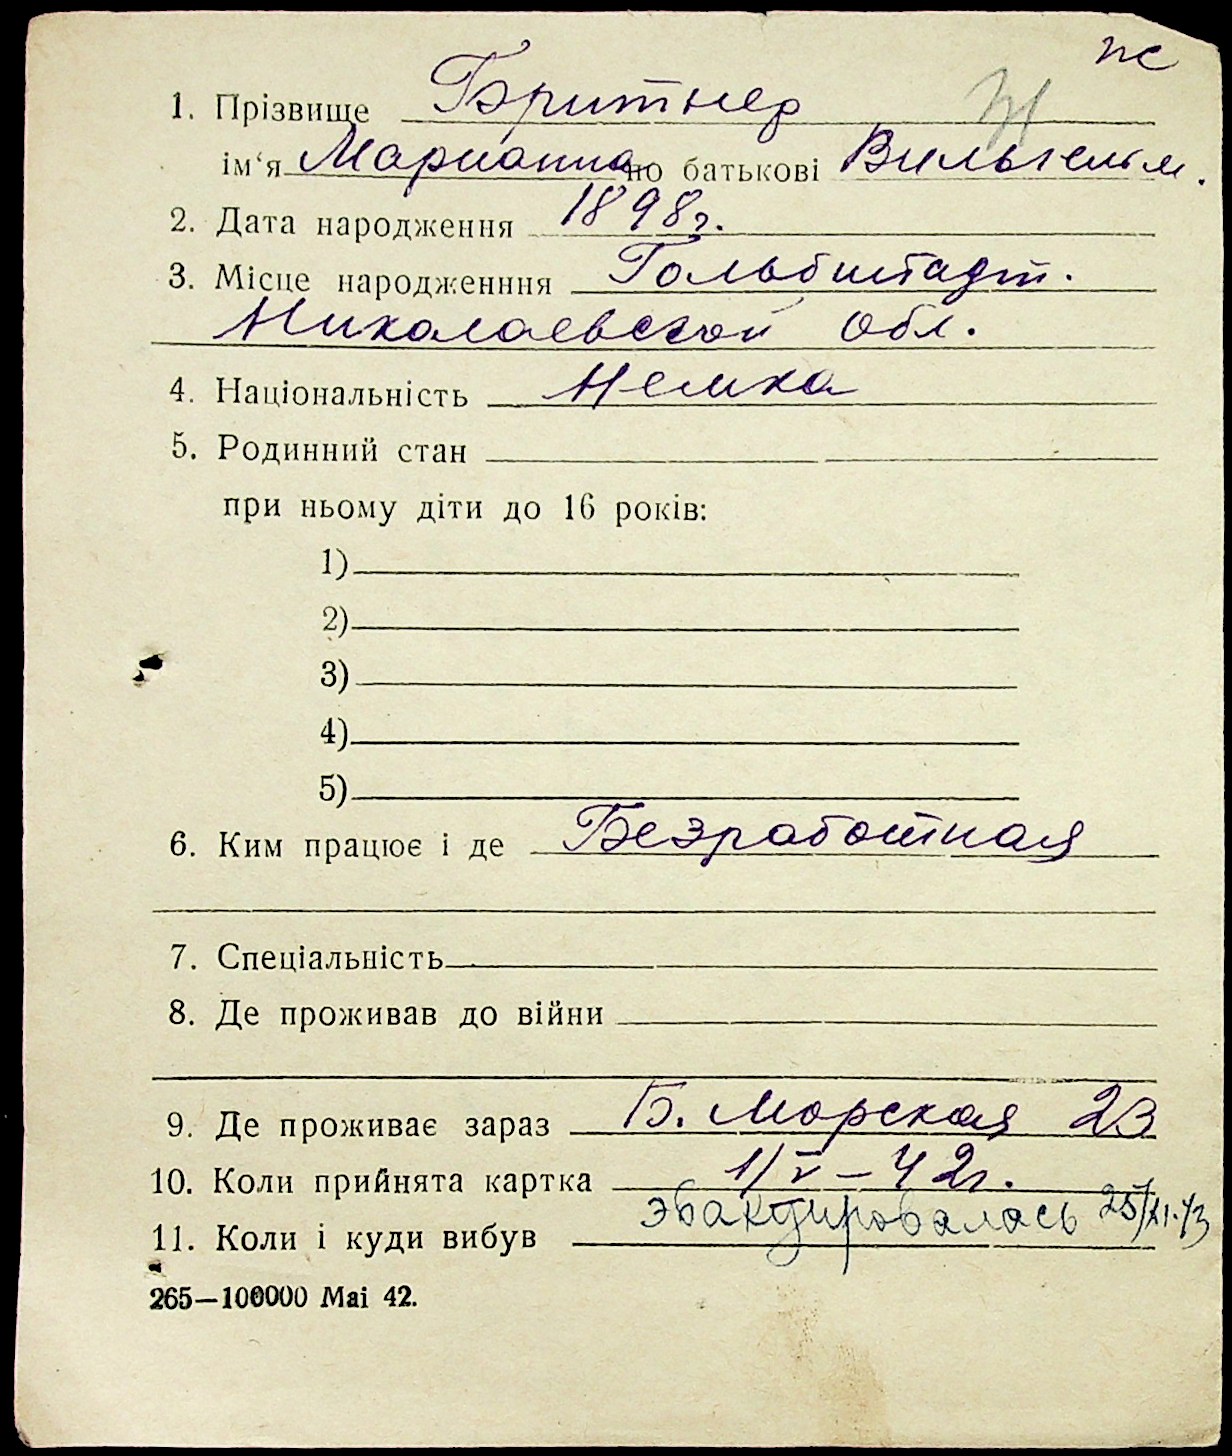 пс
1. Прізвище Бритнер
ім‘я Марианна по батькові Вильгельм.
2. Дата народження 1898г.
3. Місце народженння Гольбштадт.
Николаевской обл.
4. Національність Немка
5. Родинний стан
при ньому діти до 16 років:
1)
2)
3)
4)
5)
6. Ким працює і де Безработная
7. Спеціальність
8. Де проживав до війни
9. Де проживає зараз Б. Морская 23
10. Коли прийнята картка 1/V – 42г.
11. Коли і куди вибув эвакуировалась 25/XI.43
265—100000 Маі 42.